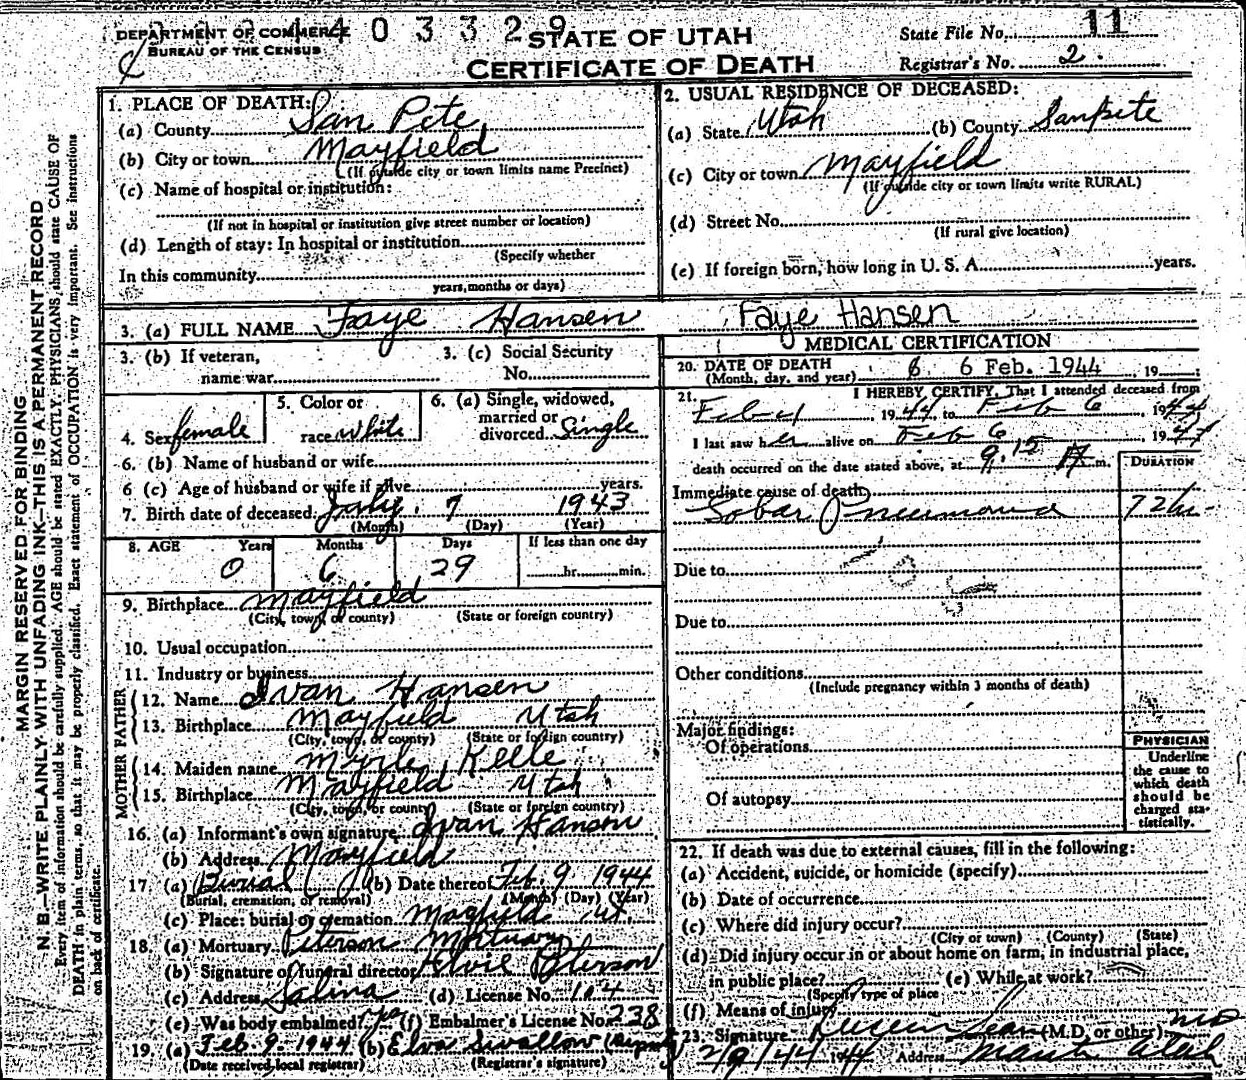 DEPARTMENT OF COMMERCE
BUREAU OF THE CENSUS
4 4 0 3 3 2 9
STATE OF UTAH
CERTIFICATE OF DEATH
State File No. 11
Registrar's No. 2.
MARGIN RESERVED FOR BINDING
N. B.—WRITE PLAINLY, WITH UNFADING INK—THIS IS A PERMANENT RECORD
Every item of information should be carefully supplied. AGE should be stated EXACTLY. PHYSICIANS should state CAUSE OF
DEATH in plain terms, so that it may be properly classified. Exact statement of OCCUPATION is very important. See instructions
on back of certificate.
1. PLACE OF DEATH:
(a) County San Pete
(b) City or town Mayfield
(If outside city or town limits name Precinct)
(c) Name of hospital or institution:
(If not in hospital or institution give street number or location)
(d) Length of stay: In hospital or institution
(Specify whether
In this community
years, months or days)
2. USUAL RESIDENCE OF DECEASED:
(a) State Utah (b) County Sanpete
(c) City or town Mayfield
(If outside city or town limits write RURAL)
(d) Street No.
(If rural give location)
(e) If foreign born, how long in U. S. A. years.
3. (a) FULL NAME Faye Hansen Faye Hansen
3. (b) If veteran,
name war
3. (c) Social Security
No.
4. Sex female
5. Color or
race white
6. (a) Single, widowed,
married or
divorced Single
6. (b) Name of husband or wife
6 (c) Age of husband or wife if alive years.
7. Birth date of deceased July 7 1943
(Month) (Day) (Year)
8. AGE Years Months Days If less than one day
0 6 29 hr. min.
9. Birthplace Mayfield
(City, town, or county) (State or foreign country)
10. Usual occupation
11. Industry or business
FATHER
12. Name Ivan Hansen
13. Birthplace Mayfield Utah
(City, town, or county) (State or foreign country)
MOTHER
14. Maiden name Myrle Kelle
15. Birthplace Mayfield Utah
(City, town, or county) (State or foreign country)
16. (a) Informant's own signature Ivan Hansen
(b) Address Mayfield
17. (a) Burial (b) Date thereof Feb. 9 1944
(Burial, cremation, or removal) (Month) (Day) (Year)
(c) Place: burial or cremation Mayfield Ut.
18. (a) Mortuary Peterson Mortuary
(b) Signature of funeral director Elvie Peterson
(c) Address Salina (d) License No. 104
(e) Was body embalmed? yes (f) Embalmer's License No. 238
19. (a) Feb. 9. 1944 (b) Elva Swallow
(Date received local registrar) (Registrar's signature)
MEDICAL CERTIFICATION
20. DATE OF DEATH 6 6 Feb. 1944, 19
(Month, day, and year)
21. I HEREBY CERTIFY, That I attended deceased from
Feb 4, 1944 to Feb 6, 1944
I last saw her alive on Feb 6, 1944
death occurred on the date stated above, at 9:15 m.
DURATION
Immediate cause of death
Lobar Pneumonia 72 hr
Due to
Due to
Other conditions
(Include pregnancy within 3 months of death)
Major findings:
Of operations
Of autopsy
PHYSICIAN
Underline
the cause to
which death
should be
charged sta-
tistically.
22. If death was due to external causes, fill in the following:
(a) Accident, suicide, or homicide (specify)
(b) Date of occurrence
(c) Where did injury occur?
(City or town) (County) (State)
(d) Did injury occur in or about home on farm, in industrial place,
in public place? (e) While at work?
(Specify type of place
(f) Means of injury
23. Signature (M.D. or other) MD
2/9/44 1944 Address Manti Utah